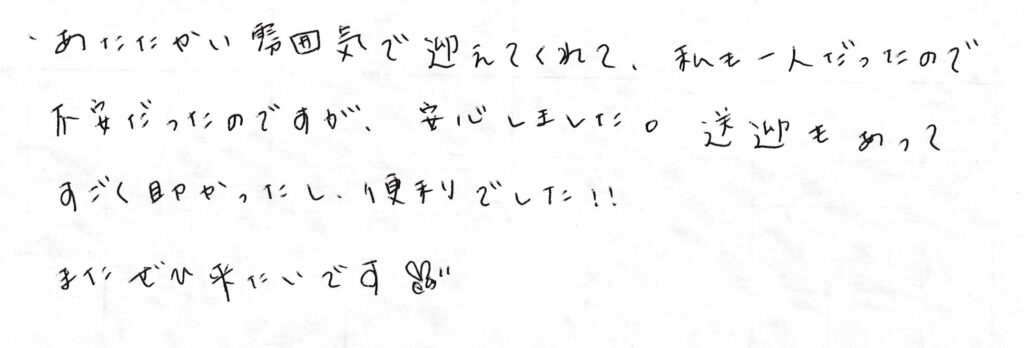 ・あたたかい雰囲気で迎えてくれて、私も一人だったので
不安だったのですが、安心しました。送迎もあって
すごく助かったし、便利でした!!
またぜひ来たいです